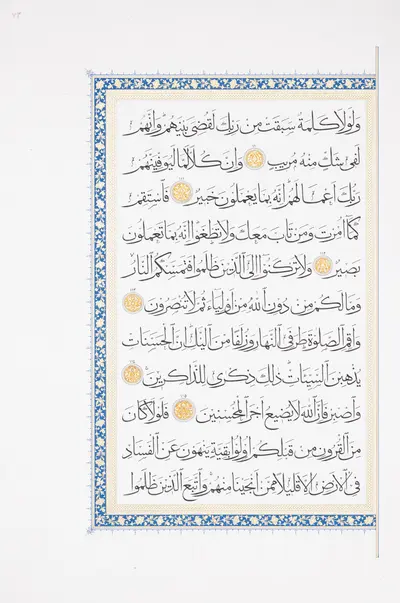 وَلَوْلَا كَلِمَةٌ سَبَقَتْ مِنْ رَبِّكَ لَقُضِيَ بَيْنَهُمْ وَإِنَّهُمْ
لَفِي شَكٍّ مِنْهُ مُرِيبٍ وَإِنَّ كُلًّا لَمَّا لَيُوَفِّيَنَّهُمْ
رَبُّكَ أَعْمَالَهُمْ إِنَّهُ بِمَا يَعْمَلُونَ خَبِيرٌ فَاسْتَقِمْ
كَمَا أُمِرْتَ وَمَنْ تَابَ مَعَكَ وَلَا تَطْغَوْا إِنَّهُ بِمَا تَعْمَلُونَ
بَصِيرٌ وَلَا تَرْكَنُوا إِلَى الَّذِينَ ظَلَمُوا فَتَمَسَّكُمُ النَّارُ
وَمَا لَكُمْ مِنْ دُونِ اللَّهِ مِنْ أَوْلِيَاءَ ثُمَّ لَا تُنْصَرُونَ
وَأَقِمِ الصَّلَوةَ طَرَفَيِ النَّهَارِ وَزُلَفًا مِنَ اللَّيْلِ إِنَّ الْحَسَنَاتِ
يُذْهِبْنَ السَّيِّئَاتِ ذَلِكَ ذِكْرَى لِلذَّاكِرِينَ
وَاصْبِرْ فَإِنَّ اللَّهَ لَا يُضِيعُ أَجْرَ الْمُحْسِنِينَ فَلَوْلَا كَانَ
مِنَ الْقُرُونِ مِنْ قَبْلِكُمْ أُولُوا بَقِيَّةٍ يَنْهَوْنَ عَنِ الْفَسَادِ
فِي الْأَرْضِ إِلَّا قَلِيلًا مِمَّنْ أَنْجَيْنَا مِنْهُمْ وَاتَّبَعَ الَّذِينَ ظَلَمُوا